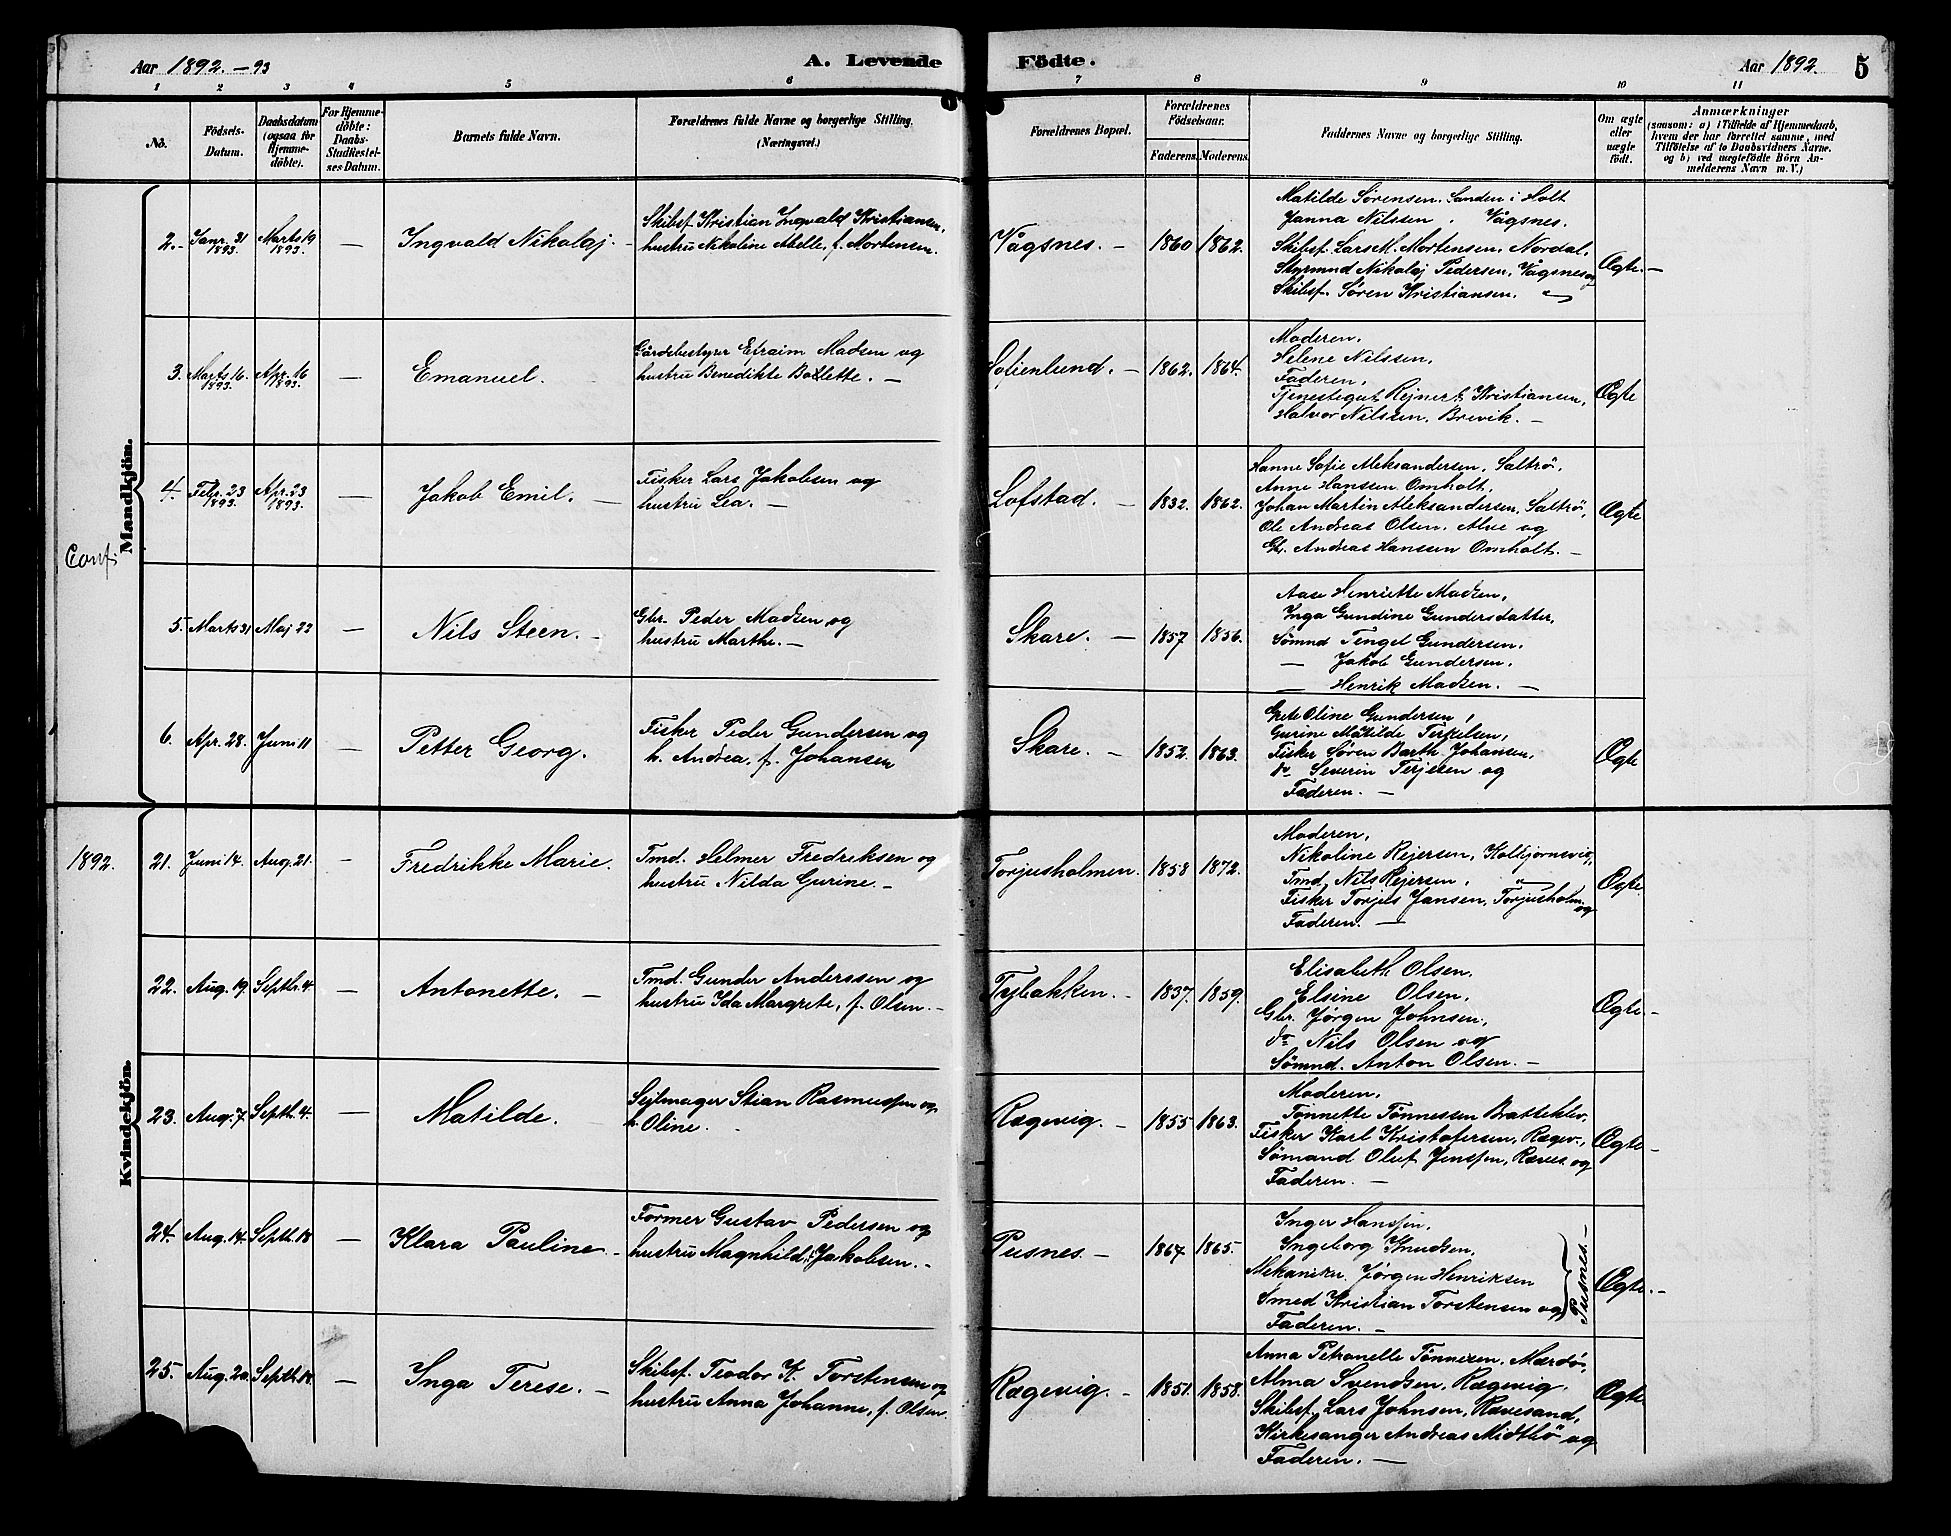 Aar 1892.–93
A. Levende Födte.
Aar 1892.
5
1 2 3 4 5 6 7 8 9 10 11
No.
Födsels-Datum.
Daabsdatum (ogsaa for Hjemme-döbte).
For Hjemme-döbte: Daabs-Stadfæstel-ses Datum.
Barnets fulde Navn.
Forældrenes fulde Navne og borgerlige Stilling. (Næringsvei.)
Forældrenes Bopæl.
Forældrenes Födselsaar.
Faderens. Moderens.
Faddernes Navne og borgerlige Stilling.
Om ægte eller uægte födt.
Anmærkninger
(saasom: a) i Tilfælde af Hjemmedaab, hvem der har forrettet samme, med Tilföielse af to Daabsvidners Navne. og b) ved uægtefödte Börn An-melderens Navn m. V.)
Mandkjön.
Conf.
2.- Janr. 31 1893. Marts 19 1893. — Ingvald Nikolaj. -
Skibsf. Kristian Ingvald Kristiansen,
hustru Nikoline Abelle, f. Mortensen.
Vågsnes. - 1860 1862.
Matilde Sørensen. Sanden i Holt
Janna Nilssen. Vågsnes.
Skibsf. Lars M. Mortensen, Nordal,
Styrmnd Nikolaj Pedersen, Vågsnes og
Skibsf. Søren Kristiansen. "
Ægte. —
3. Marts 16. 1893. Apr. 16 1893. — Emanuel.
Gårdsbestyrer Efraim Madsen og
hustru Benedikte Bollette. —
Sofienlund. - 1862. 1864.
Moderen,
Helene Nilssen,
Faderen,
Tjenestegut Rejnert Kristiansen,
Halvor Nilssen, Brevik. —
Ægte
4. Febr. 23 1893. Apr. 23 1893. — Jakob Emil. —
Fisker Lars Jakobsen og
hustru Lea. —
Lofstad. — 1832. 1862.
Hanne Sofie Aleksandersen, Saltrø.
Anne Hanssen Omholt.
Johan Martin Aleksandersen, Saltrö,
Ole Andreas Olsen, Alve og
Gb. Andreas Hanssen Omholt. —
Ægte
5. Marts 31 Maj 22 — Nils Steen. -
Gbr. Peder Madsen og
hustru Marthe. —
Skare. — 1857 1856.
Aase Henriette Madsen,
Inga Gundine Gundersdatter,
Sømnd Tengel Gundersen.
— Jakob Gundersen.
— Henrik Madsen. —
6. Apr. 28. Juni 11 — Petter Georg.
Fisker Peder Gundersen og
h. Andrea, f. Johansen
Skare. — 1852. 1863.
Grete Oline Gundersen,
Gurine Matilde Terkelsen,
Fisker Søren Barth. Johansen,
do Severin Terjesen og
Faderen. —
Ægte
Kvindekjön.
1892. 21. Juni 14. Aug. 21. — Fredrikke Marie.
Tmd. Helmer Fredriksen og
hustru Nilda Gurine. -
Torjusholmen. 1858 1872.
Moderen,
Nikoline Rejersen, Kolbjørnsvig,
Tmd. Nils Rejersen, "
Fisker Torjels Jansen, Torjusholm. og
Faderen. —
Ægte.
22. Aug. 19. Septbr. 4. — Antonette. —
Tmd. Gunder Anderssen og
hustru Ida Margrete, f. Olsen. -
Tybakken. - 1837. 1859.
Elisabeth Olsen.
Elsine Olsen,
Gbr. Jørgen Johnsen,
do Nils Olsen og
Sømnd. Anton Olsen. —
Ægte. —
23. Aug. 7. Septb. 4. — Matilde.
Sejlmager Stian Rasmussen og
h. Oline.
Rægevig. - 1855 1863.
Moderen,
Tonnette Tønnessen Bratteklev,
Fisker Karl Kristofersen, Rægev.,
Sømand Oluf Jenssen, Ræves. og
Faderen. —
Ægte. —
24. Aug. 14. Septb. 18. — Klara Pauline. -
Former Gustav Pedersen og
hustru Magnhild, Jakobsen. -
Pusnes. — 1867 1865.
Inger Hanssen,
Ingeborg Knudsen,
Mekaniker Jørgen Henriksen
Smed Kristian Torstensen og
Faderen. —
Pusnes. —
Ægte. —
25. Aug. 20. Septb. 18. — Inga Terese. —
Skibsf. Teodor K. Torstensen og
hustru Anna Johanne, f. Olsen.
Rægevig. - 1851. 1858.
Anna Petronelle Tønnesen, Mærdø,
Alma Svendsen, Rægevig.
Skibsf. Lars Johnsen, Rævesand,
Kirkesanger Andreas Midtbø og
Faderen. —
Ægte